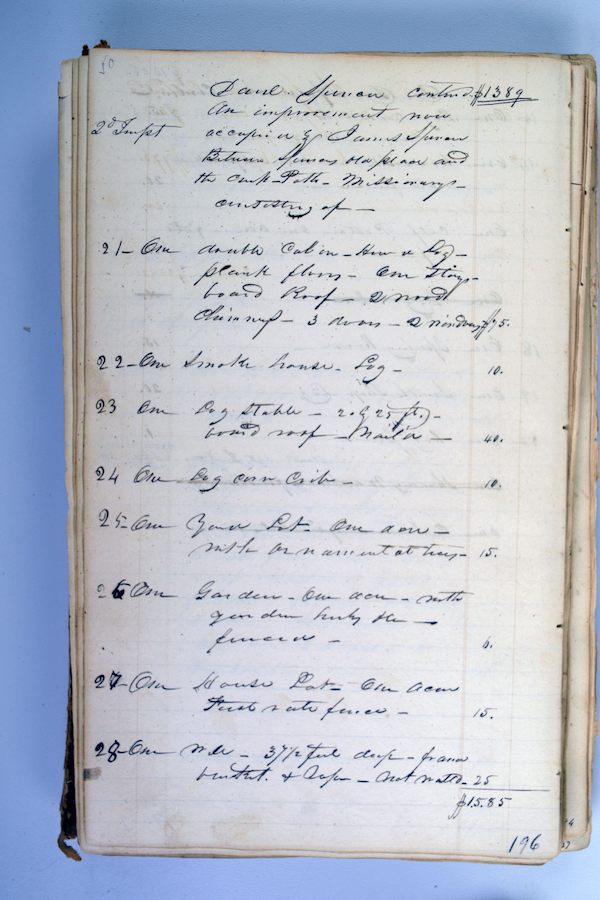 50
Danl Spencer contind $1389
An improvement now
2d Impt occupied by James Spencer
Between Spencers old place and
the Path - Missionarys -
consisting of -
21 - One double Cabin - Hewd Log -
plank floors - One Story -
board Roof - 2 wood
Chimneys - 3 doors - 2 windows $75.
22 - One Smoke house - Log - 10.
23 One Log Stable - 20 by 25 ft. -
board roof - Nail'd - 40.
24 One Log corn Crib - 10.
25 - One Yard Lot - One acre -
with ornamental trees - 15.
26 One Garden - One acre - with
garden herbs &c -
fenced - 6.
27 - One House Lot - One acre
First rate fence - 15.
28 - One Well - 37 1/2 feet deep - frame
bucket. & Rope - not walld - 25
$15.85
196